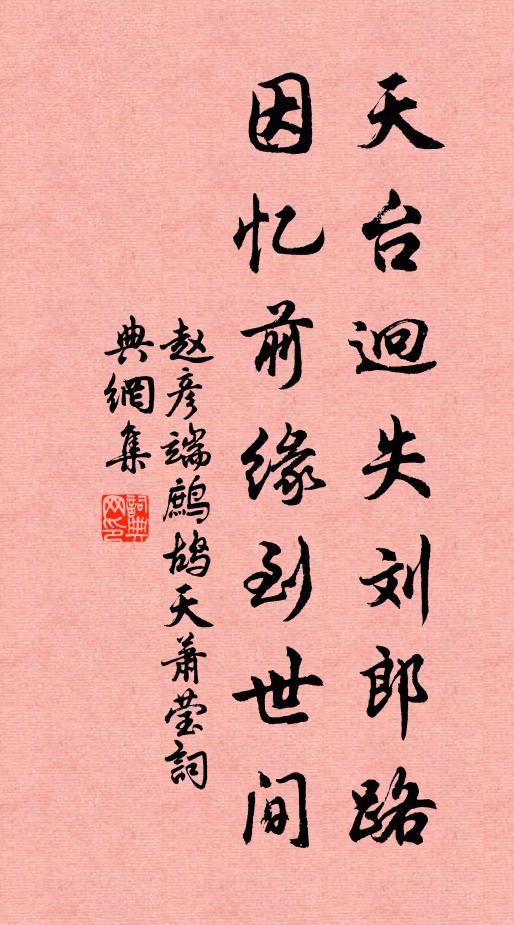 天台迥失刘郎路
因忆前缘到世间
赵彦端鹧鸪天萧莹詞
典網集
詞典
网印